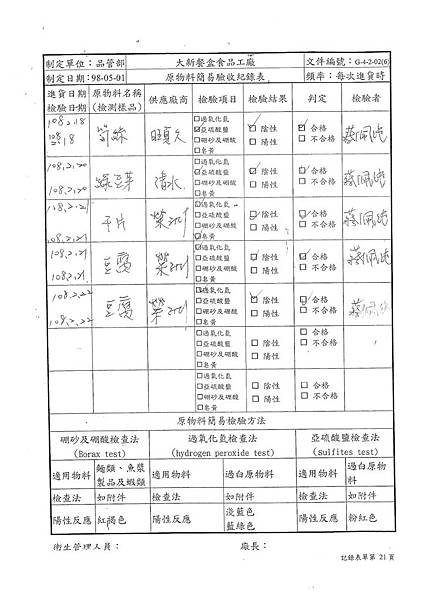 制定單位：品管部 大新餐盒食品工廠 文件編號：G-4-2-02(6)
制定日期：98-05-01 原物料簡易驗收紀錄表 頻率：每次進貨時
進貨日期 原物料名稱 供應廠商 檢驗項目 檢驗結果 判定 檢驗者
檢驗日期 (檢測樣品)
108.2.18 □過氧化氫
108.2.18 筍絲 ☑亞硫酸鹽 ☑ 陰性 ☑ 合格
□硼砂及硼酸 □ 陽性 □ 不合格
□皂黃
108.2.20 □過氧化氫
綠豆芽 清水 ☑亞硫酸鹽 ☑ 陰性 ☑ 合格
108.2.20 □硼砂及硼酸 □ 陽性 □ 不合格
□皂黃
108.2.21 □過氧化氫
干片 □亞硫酸鹽 ☑ 陰性 ☑ 合格
□硼砂及硼酸 □ 陽性 □ 不合格
108.2.21 ☑皂黃
108.2.21 ☑過氧化氫
豆腐 □亞硫酸鹽 ☑ 陰性 ☑ 合格
108.2.21 □硼砂及硼酸 □ 陽性 □ 不合格
□皂黃
108.2.22 ☑過氧化氫
豆腐 □亞硫酸鹽 ☑ 陰性 ☑ 合格
108.2.22 □硼砂及硼酸 □ 陽性 □ 不合格
□皂黃
□過氧化氫 □ 合格
□亞硫酸鹽 □ 陰性 □ 不合格
□硼砂及硼酸 □ 陽性
□皂黃
□過氧化氫
□亞硫酸鹽 □ 陰性 □ 合格
□硼砂及硼酸 □ 陽性 □ 不合格
□皂黃
原物料簡易檢驗方法
硼砂及硼酸檢查法 過氧化氫檢查法 亞硫酸鹽檢查法
(Borax test) (hydrogen peroxide test) (sulfites test)
適用物料 麵類、魚漿製品及蝦類 適用物料 過白原物料 適用物料 過白原物料
檢查法 如附件 檢查法 如附件 檢查法 如附件
陽性反應 紅褐色 陽性反應 淡藍色 陽性反應 粉紅色
藍綠色
衛生管理人員： 廠長：
記錄表單第 21 頁